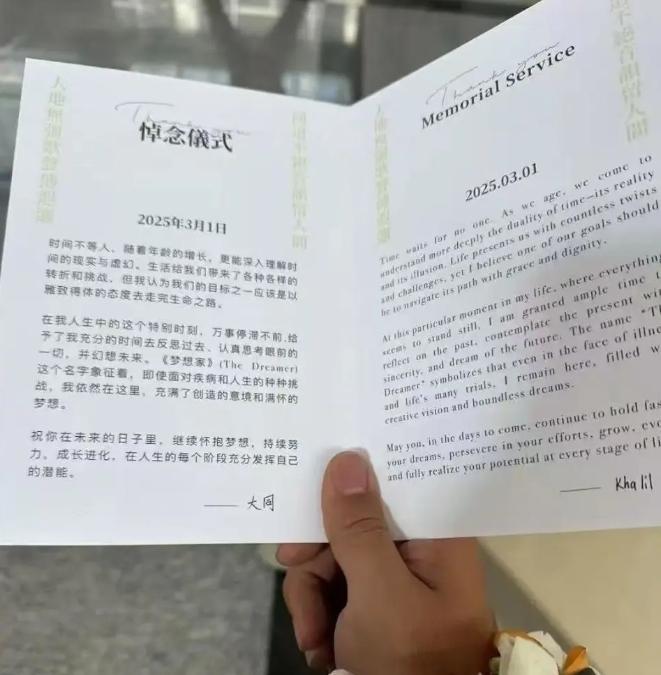 Thank you
悼念儀式
2025年3月1日
时间不等人，随着年龄的增长，更能深入理解时
间的现实与虚幻。生活给我们带来了各种各样的
转折和挑战，但我认为我们的目标之一应该是以
雅致得体的态度去走完生命之路。
在我人生中的这个特别时刻，万事停滞不前，给
予了我充分的时间去反思过去、认真思考眼前的
一切，并幻想未来。《梦想家》(The Dreamer)
这个名字象征着，即使面对疾病和人生的种种挑
战，我依然在这里，充满了创造的意境和满怀的
梦想。
祝你在未来的日子里，继续怀抱梦想，持续努
力、成长进化，在人生的每个阶段充分发挥自己
的潜能。
—— 大同
Thank you
Memorial Service
2025.03.01
Time waits for no one. As we age, we come to
understand more deeply the duality of time—its reality
and its illusion. Life presents us with countless twists
and challenges, yet I believe one of our goals should
be to navigate its path with grace and dignity.
At this particular moment in my life, where everything
seems to stand still, I am granted ample time t
reflect on the past, contemplate the present wit
sincerity, and dream of the future. The name "Th
Dreamer" symbolizes that even in the face of illne
and life's many trials, I remain here, filled w
creative vision and boundless dreams.
May you, in the days to come, continue to hold fas
your dreams, persevere in your efforts, grow, evo
and fully realize your potential at every stage of li
—— Khalil